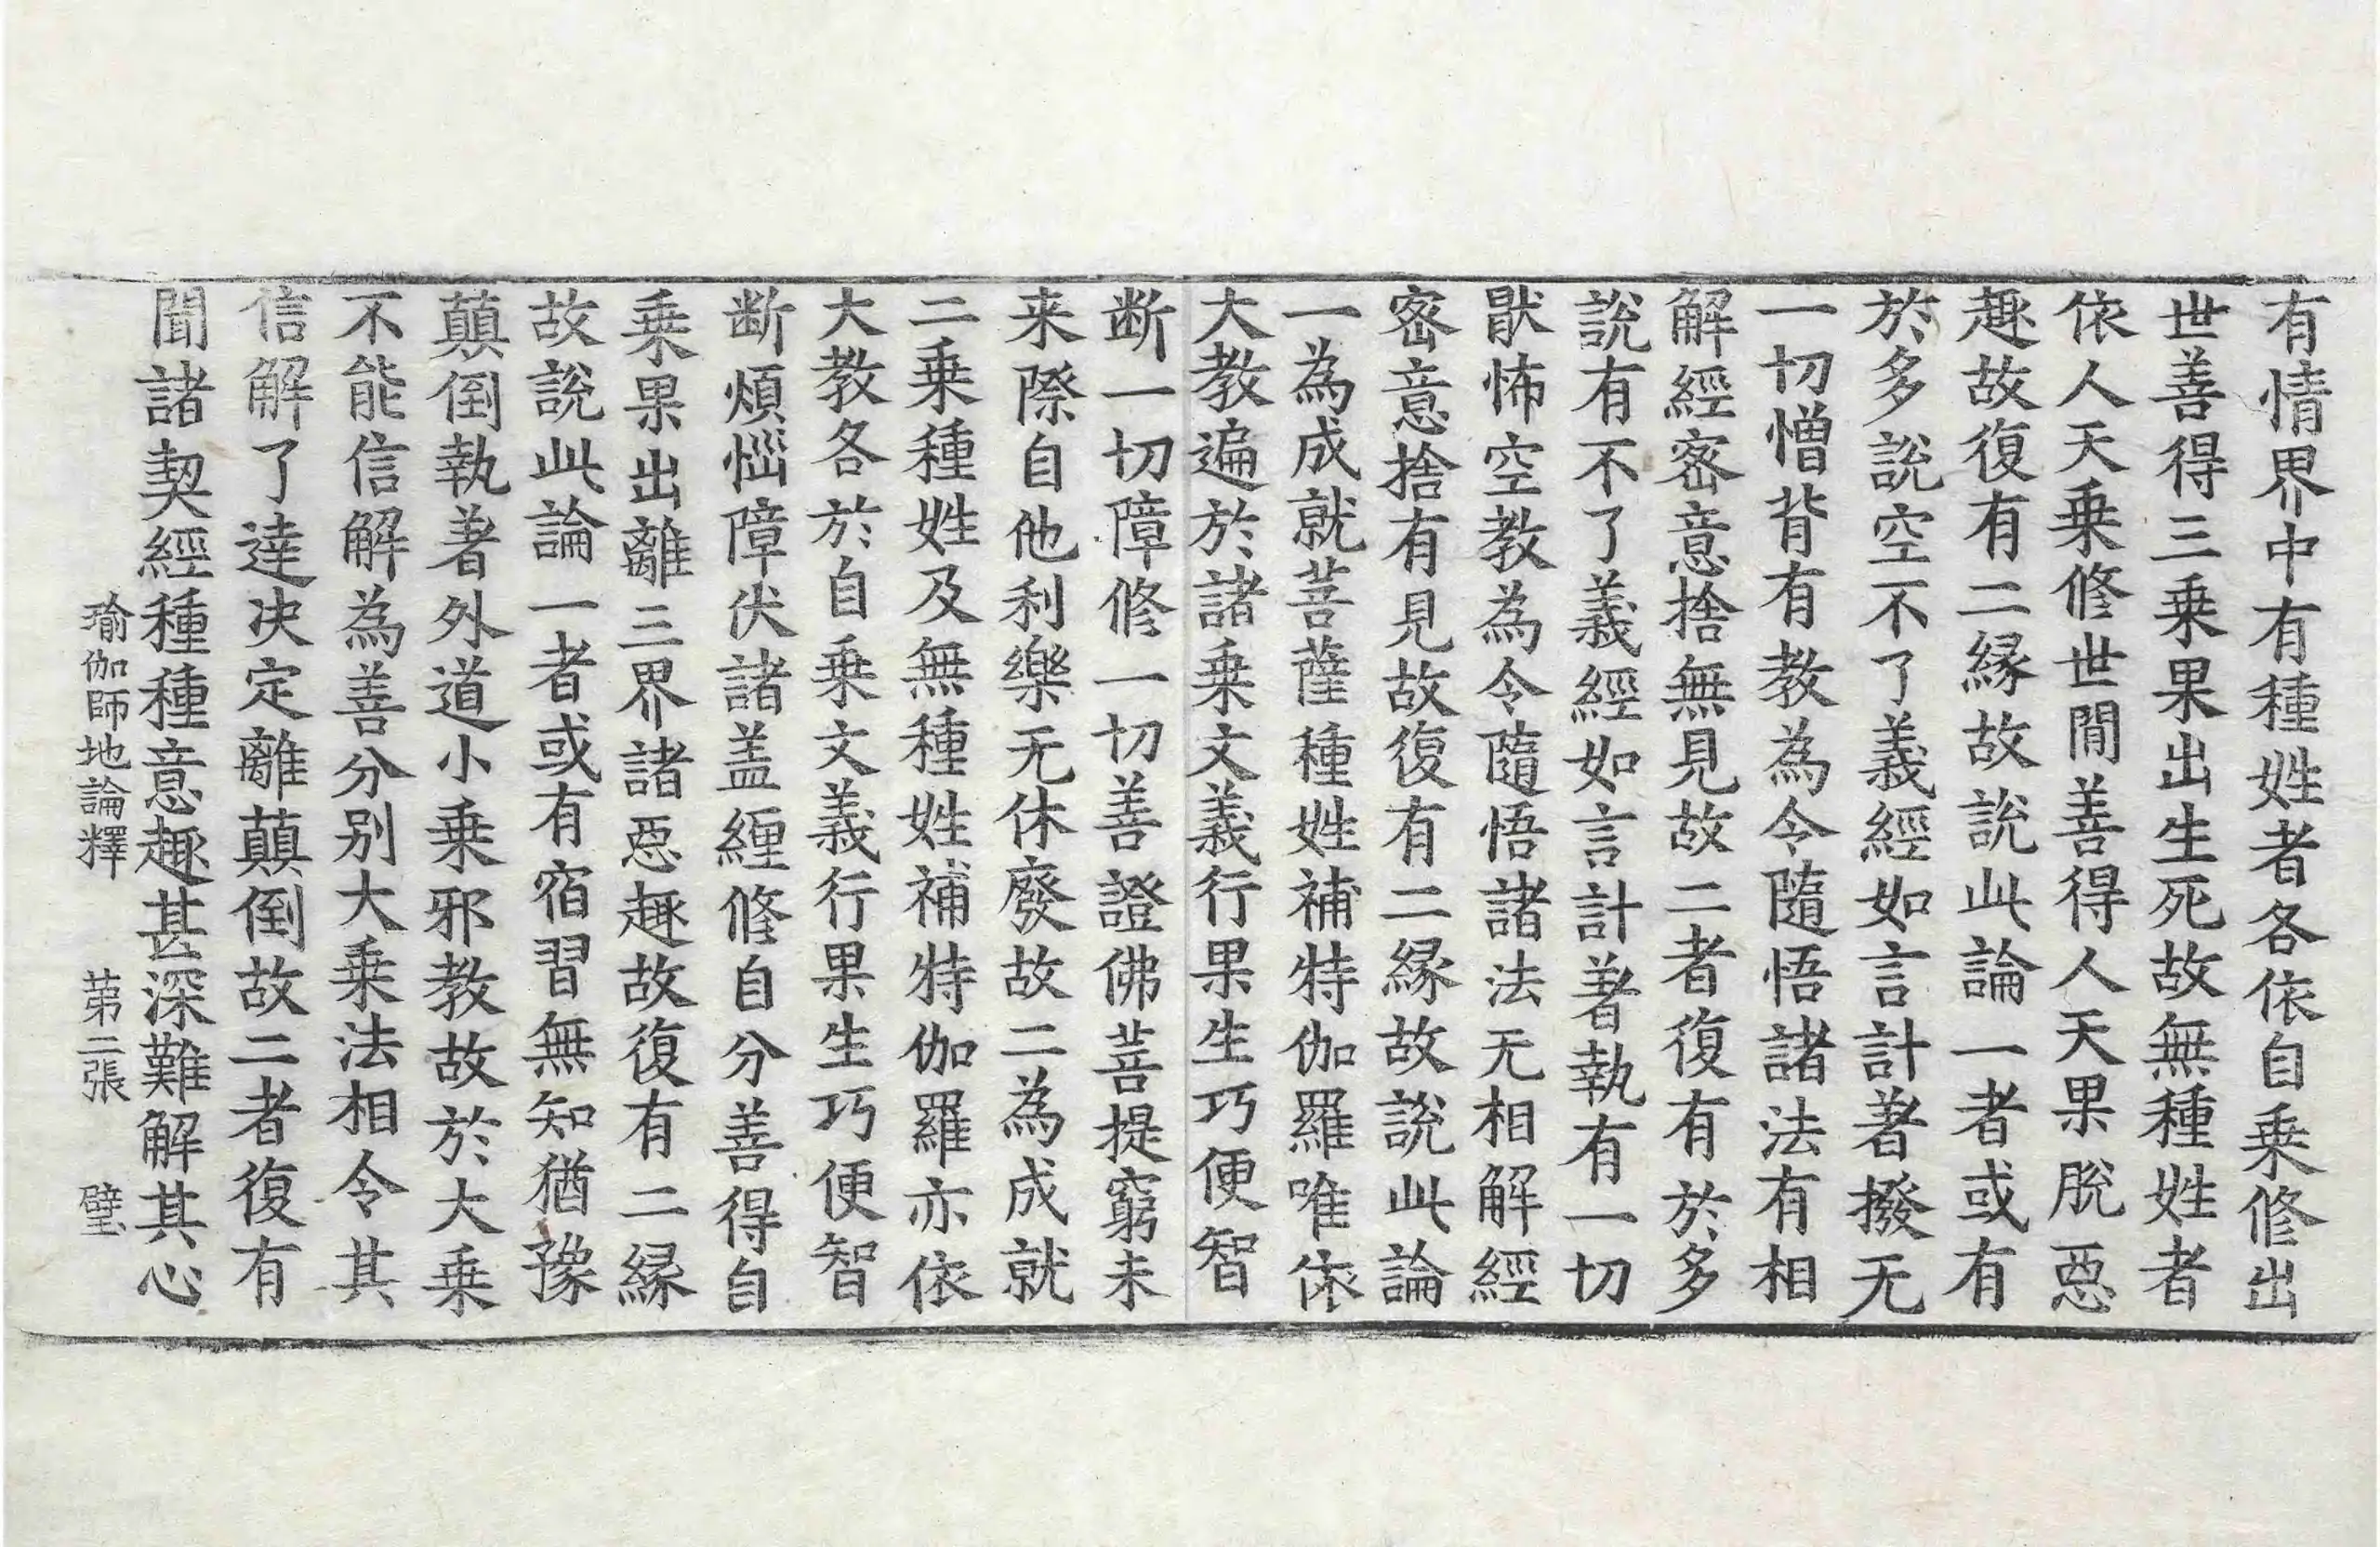 有情界中有種姓者各依自乗修出
世善得三乗果出生死故無種姓者
依人天乗修世間善得人天果脫惡
趣故復有二縁故說此論一者或有
於多說空不了義經如言計著撥无
一切憎背有教為令隨悟諸法有相
解經宻意捨無見故二者復有於多
說有不了義經如言計著執有一切
猒怖空教為令隨悟諸法无相解經
宻意捨有見故復有二縁故說此論
一為成就菩薩種姓補特伽羅唯依
大教遍於諸乗文義行果生巧便智
断一切障修一切善證佛菩提窮未
来際自他利樂无休廢故二為成就
二乗種姓及無種姓補特伽羅亦依
大教各於自乗文義行果生巧便智
断煩惱障伏諸盖纒修自分善得自
乗果出離三界諸惡趣故復有二縁
故說此論一者或有宿習無知猶豫
顛倒執著外道小乗邪教故於大乗
不能信解為善分别大乗法相令其
信解了達决定離顛倒故二者復有
聞諸契經種種意趣甚深難解其心
瑜伽師地論釋 苐二張 璧